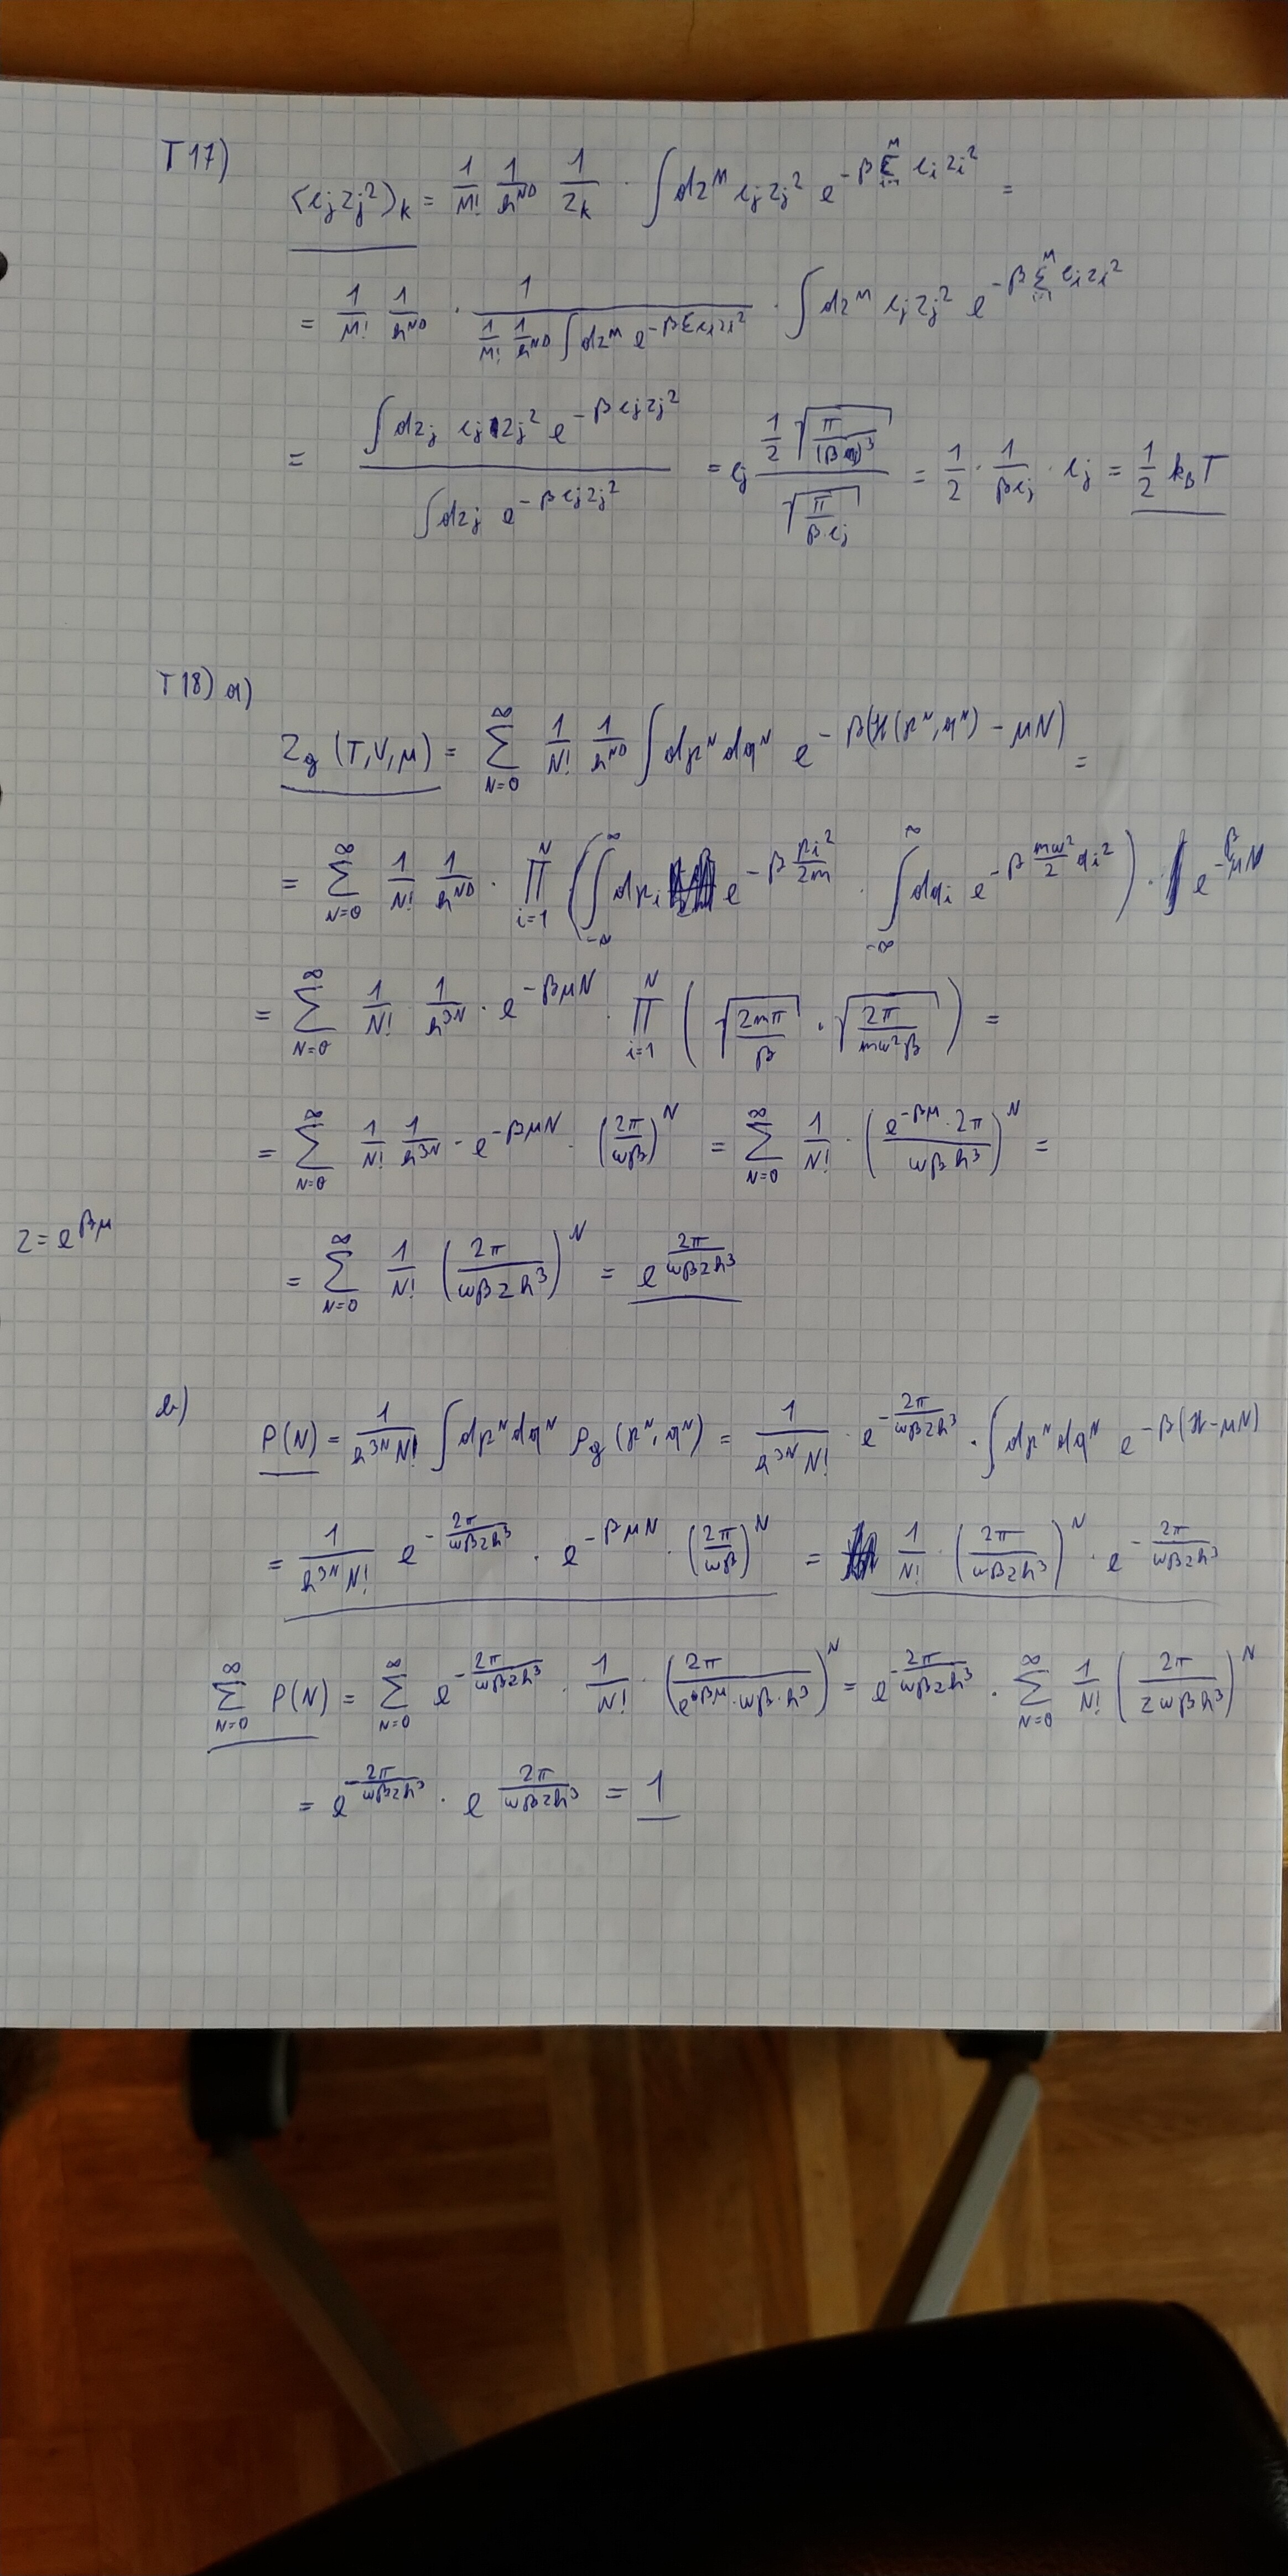 T17)
⟨e_j z_j²⟩_k = 1/M! 1/h^ND 1/Z_k · ∫dz^M e_j z_j² e^{-β Σ_{i=1}^M e_i z_i²} =
= 1/M! 1/h^ND · 1/(1/M! 1/h^ND ∫dz^M e^{-βΣ e_i z_i²}) · ∫dz^M e_j z_j² e^{-β Σ_{i=1}^M e_i z_i²}
= (∫dz_j e_j z_j² e^{-β e_j z_j²})/(∫dz_j e^{-β e_j z_j²}) = e_j (1/2 √(π/(β e_j)³))/(√(π/(β e_j))) = 1/2 · 1/(β e_j) · e_j = 1/2 k_B T
T18) a)
Z_g (T,V,μ) = Σ_{N=0}^∞ 1/N! 1/h^ND ∫dp^N dq^N e^{-β(H(p^N,q^N) - μN)} =
= Σ_{N=0}^∞ 1/N! 1/h^ND · Π_{i=1}^N (∫_{-∞}^∞ dp_i e^{-β p_i²/2m} · ∫_{-∞}^∞ dq_i e^{-β mω²/2 q_i²}) · e^{-βμN}
= Σ_{N=0}^∞ 1/N! 1/h^3N · e^{-βμN} · Π_{i=1}^N (√(2mπ/β) · √(2π/(mω²β))) =
= Σ_{N=0}^∞ 1/N! 1/h^3N · e^{-βμN} · (2π/(ωβ))^N = Σ_{N=0}^∞ 1/N! · ((e^{-βμ} · 2π)/(ωβ h³))^N =
z = e^{βμ}
= Σ_{N=0}^∞ 1/N! (2π/(ωβ z h³))^N = e^{2π/(ωβzh³)}
b)
P(N) = 1/(h^3N N!) ∫dp^N dq^N ρ_g (p^N, q^N) = 1/(h^3N N!) · e^{-2π/(ωβzh³)} · ∫dp^N dq^N e^{-β(H-μN)}
= 1/(h^3N N!) e^{-2π/(ωβzh³)} · e^{-βμN} · (2π/(ωβ))^N = 1/N! · (2π/(ωβzh³))^N · e^{-2π/(ωβzh³)}
Σ_{N=0}^∞ P(N) = Σ_{N=0}^∞ e^{-2π/(ωβzh³)} · 1/N! · (2π/(e^{βμ} · ωβ · h³))^N = e^{-2π/(ωβzh³)} · Σ_{N=0}^∞ 1/N! (2π/(zωβh³))^N
= e^{-2π/(ωβzh³)} · e^{2π/(ωβzh³)} = 1